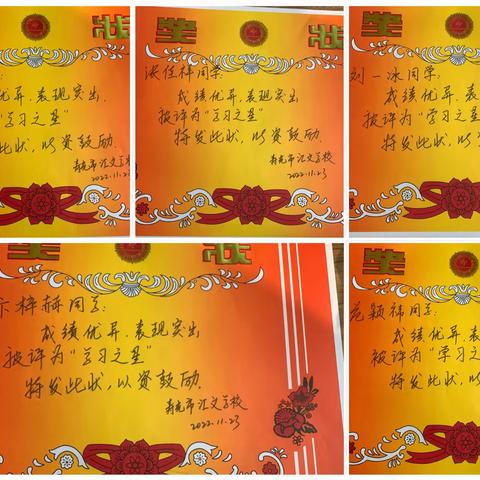 优异、表现突出
“学习之星”
此状,以资鼓励.
寿光市汇文学校
2022.11.23
状
同学:
成绩优异、表现突出
被评为“学习之星”
特发此状,以资鼓励.
寿光市汇文学校
2022.11.23
奖
刘一冰同学:
成绩优异、表
被评为“学习之星
特发此状,以
状
梓赫同学:
成绩优异、表现突出
被评为“学习之星”
特发此状,以资鼓励.
寿光市汇文学校
2022.11.23
奖
范颖祎同学:
成绩优异、表
被评为“学习之星
特发此状,以